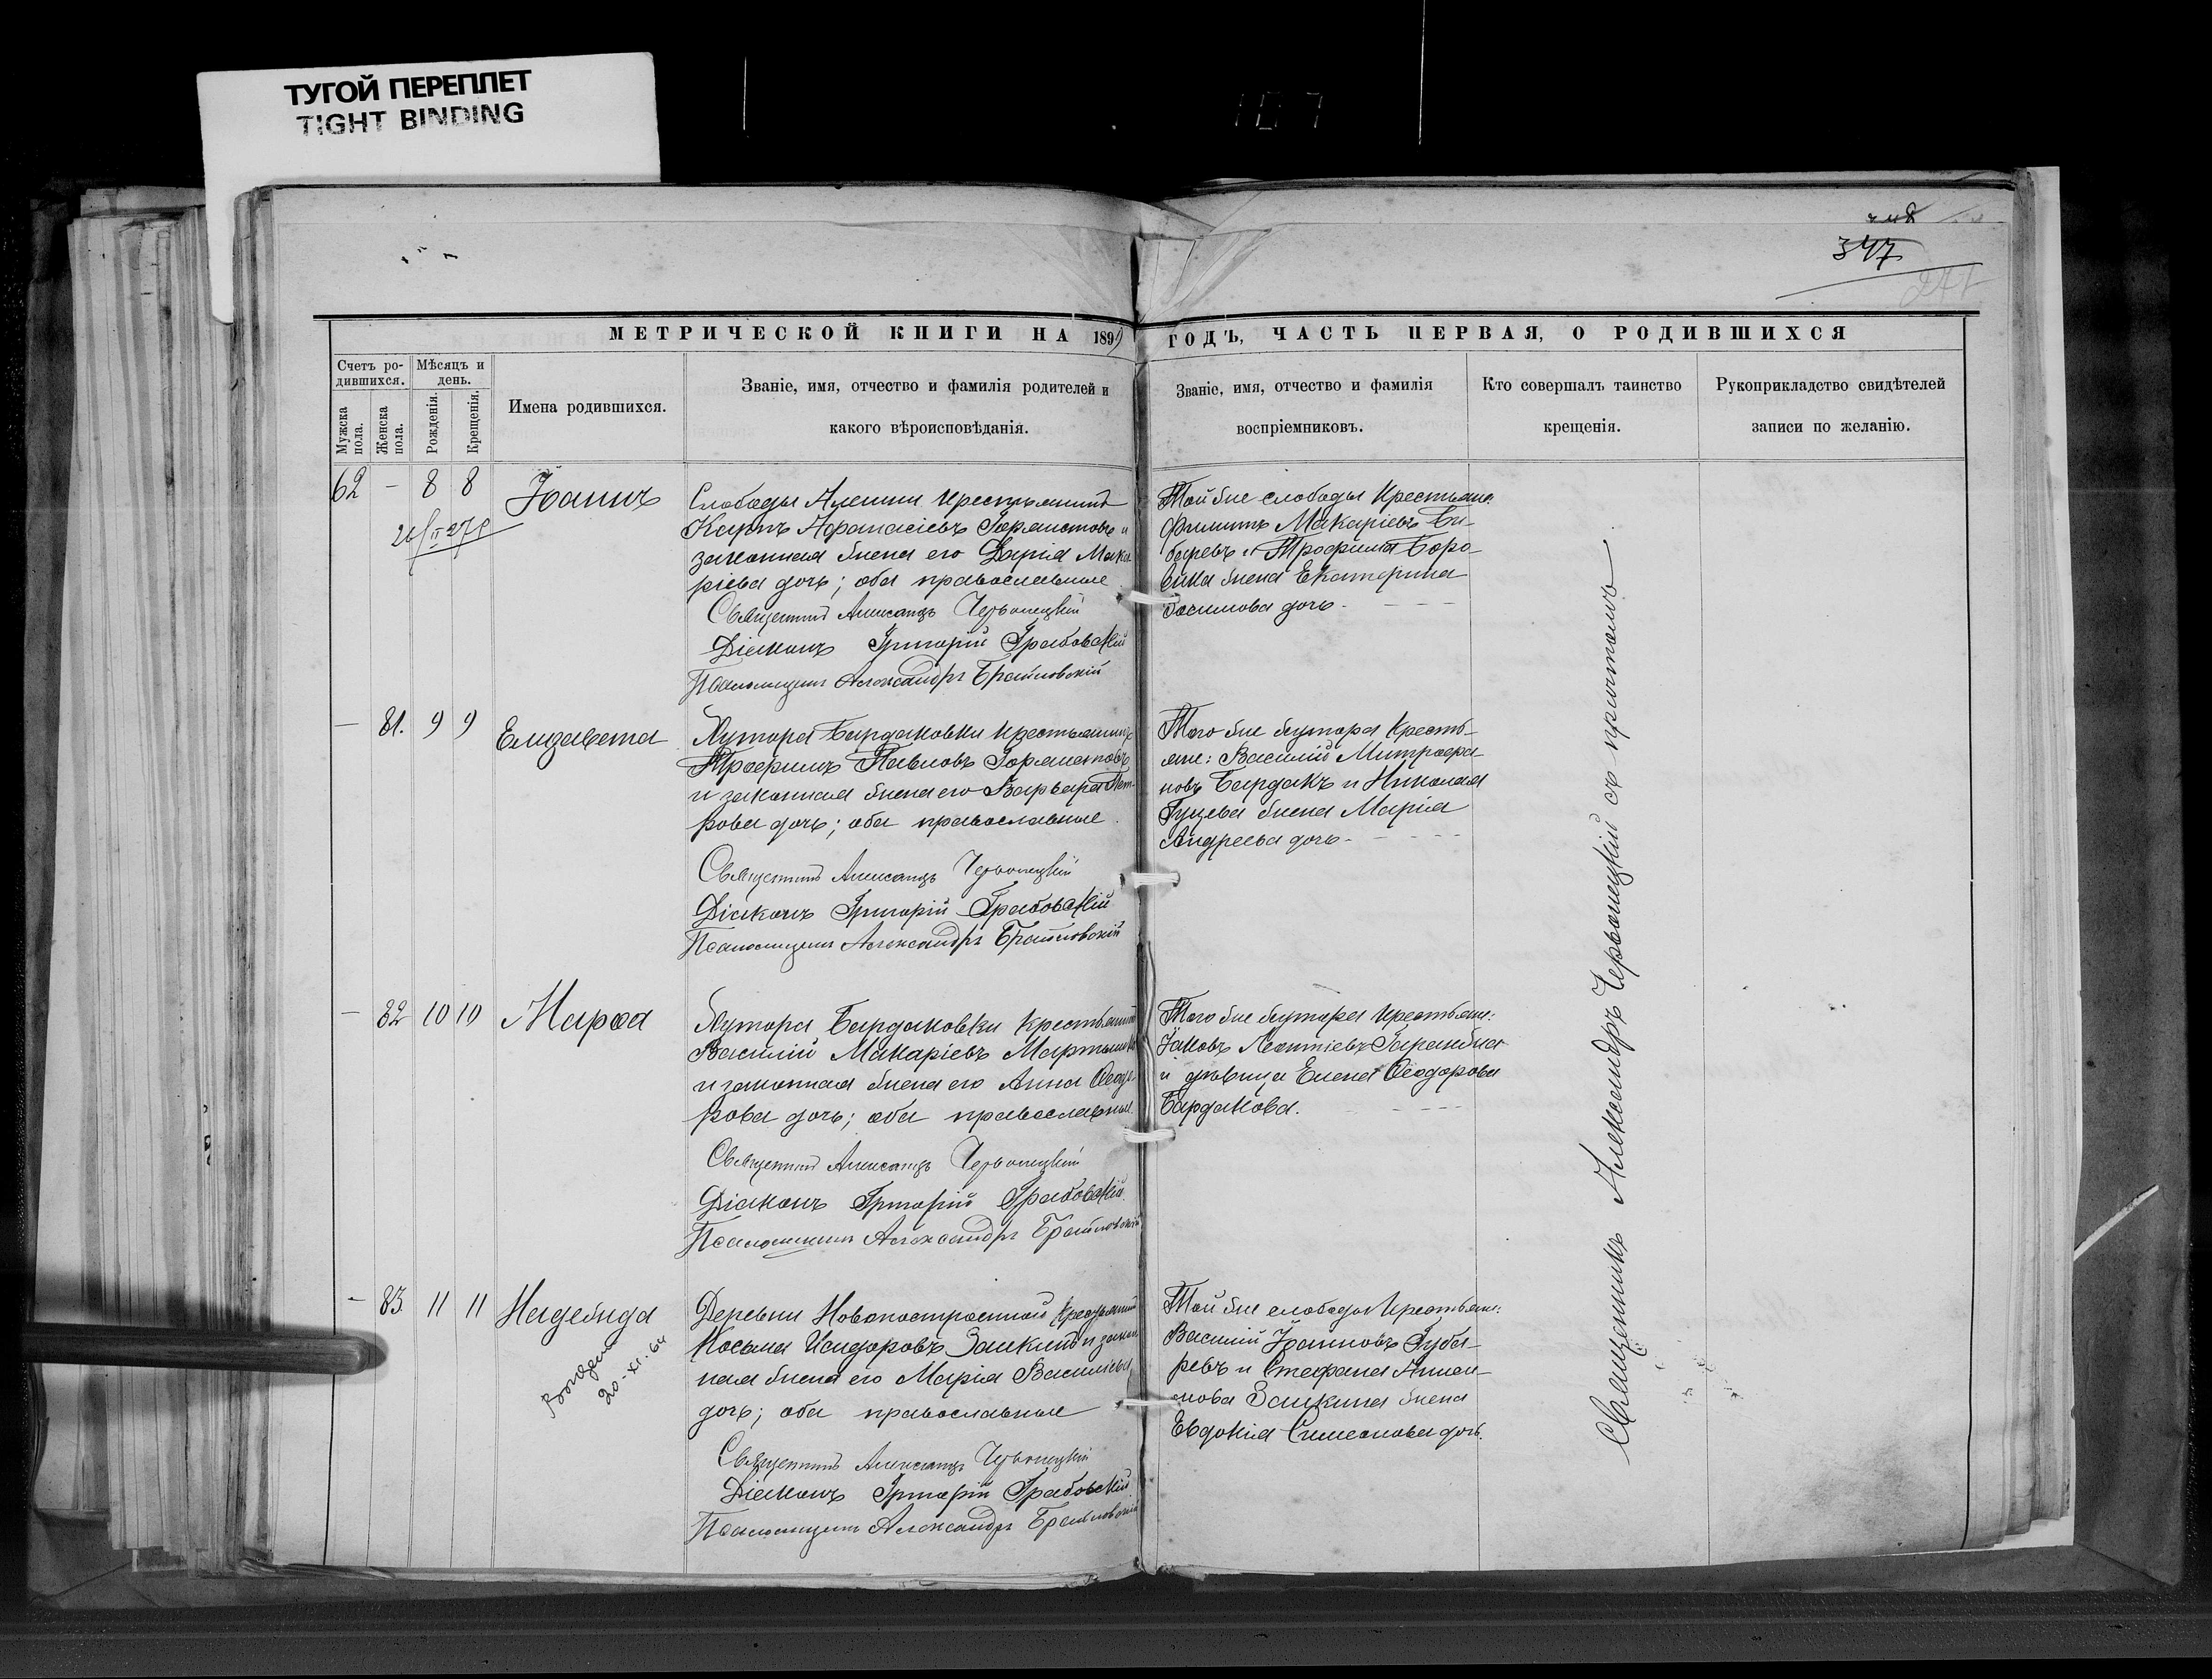 ТУГОЙ ПЕРЕПЛЕТ
TIGHT BINDING
107
347
МЕТРИЧЕСКОЙ КНИГИ НА 1899 ГОДЪ, ЧАСТЬ ПЕРВАЯ, О РОДИВШИХСЯ
Счетъ ро-
дившихся.
Мѣсяцъ и
день.
Мужска
пола.
Женска
пола.
Рожденія.
Крещенія.
Имена родившихся.
Званіе, имя, отчество и фамилія родителей и
какого вѣроисповѣданія.
Званіе, имя, отчество и фамилія
воспріемниковъ.
Кто совершалъ таинство
крещенія.
Рукоприкладство свидѣтелей
записи по желанію.
62 - 8 8 Іоаннъ
Слободы крестьянинъ
Карпъ Афанасіевъ и
законная жена его Дарія Мака
ріева дочь; оба православные
Священникъ Александръ Червонецкій
Діаконъ Григорій Грабовскій
Псаломщикъ Александръ
Той же слободы крестьяне:
Филиппъ Макаріевъ
и Трофима Боро-
вика жена Екатерина
дочь.
- 81. 9 9 Елизавета
Хутора Бардаковки крестьянинъ
Трофимъ Павловъ
и законная жена его Варвара Пет-
рова дочь; оба православные.
Священникъ Александръ Червонецкій
Діаконъ Григорій Грабовскій
Псаломщикъ Александръ
Того же хутора кресть-
яне: Василій Митрофа-
новъ Бардакъ и Николая
Гуцева жена Марія
Андреева дочь.
- 82 10 10 Марѳа
Хутора Бардаковки крестьянинъ
Василій Макаріевъ
и законная жена его Анна Ѳеодо-
рова дочь; оба православные.
Священникъ Александръ Червонецкій
Діаконъ Григорій Грабовскій
Псаломщикъ Александръ
Того же хутора крестьяне:
Іаковъ Леонтіевъ
и дѣвица Елена Ѳеодорова
Бардакова.
- 83. 11 11 Надежда
20-XI-64
Деревни Новопостроенной крестьянинъ
Косьма Исидоровъ Заикинъ и закон
ная жена его Марія Василіева
дочь; оба православные
Священникъ Александръ Червонецкій
Діаконъ Григорій Грабовскій
Псаломщикъ Александръ
Той же слободы крестьяне:
Василій Іоанновъ Губа-
ревъ и Стефана
Заикина жена
Евдокія Симеонова дочь.
Священникъ Александръ Червонецкій съ причтомъ